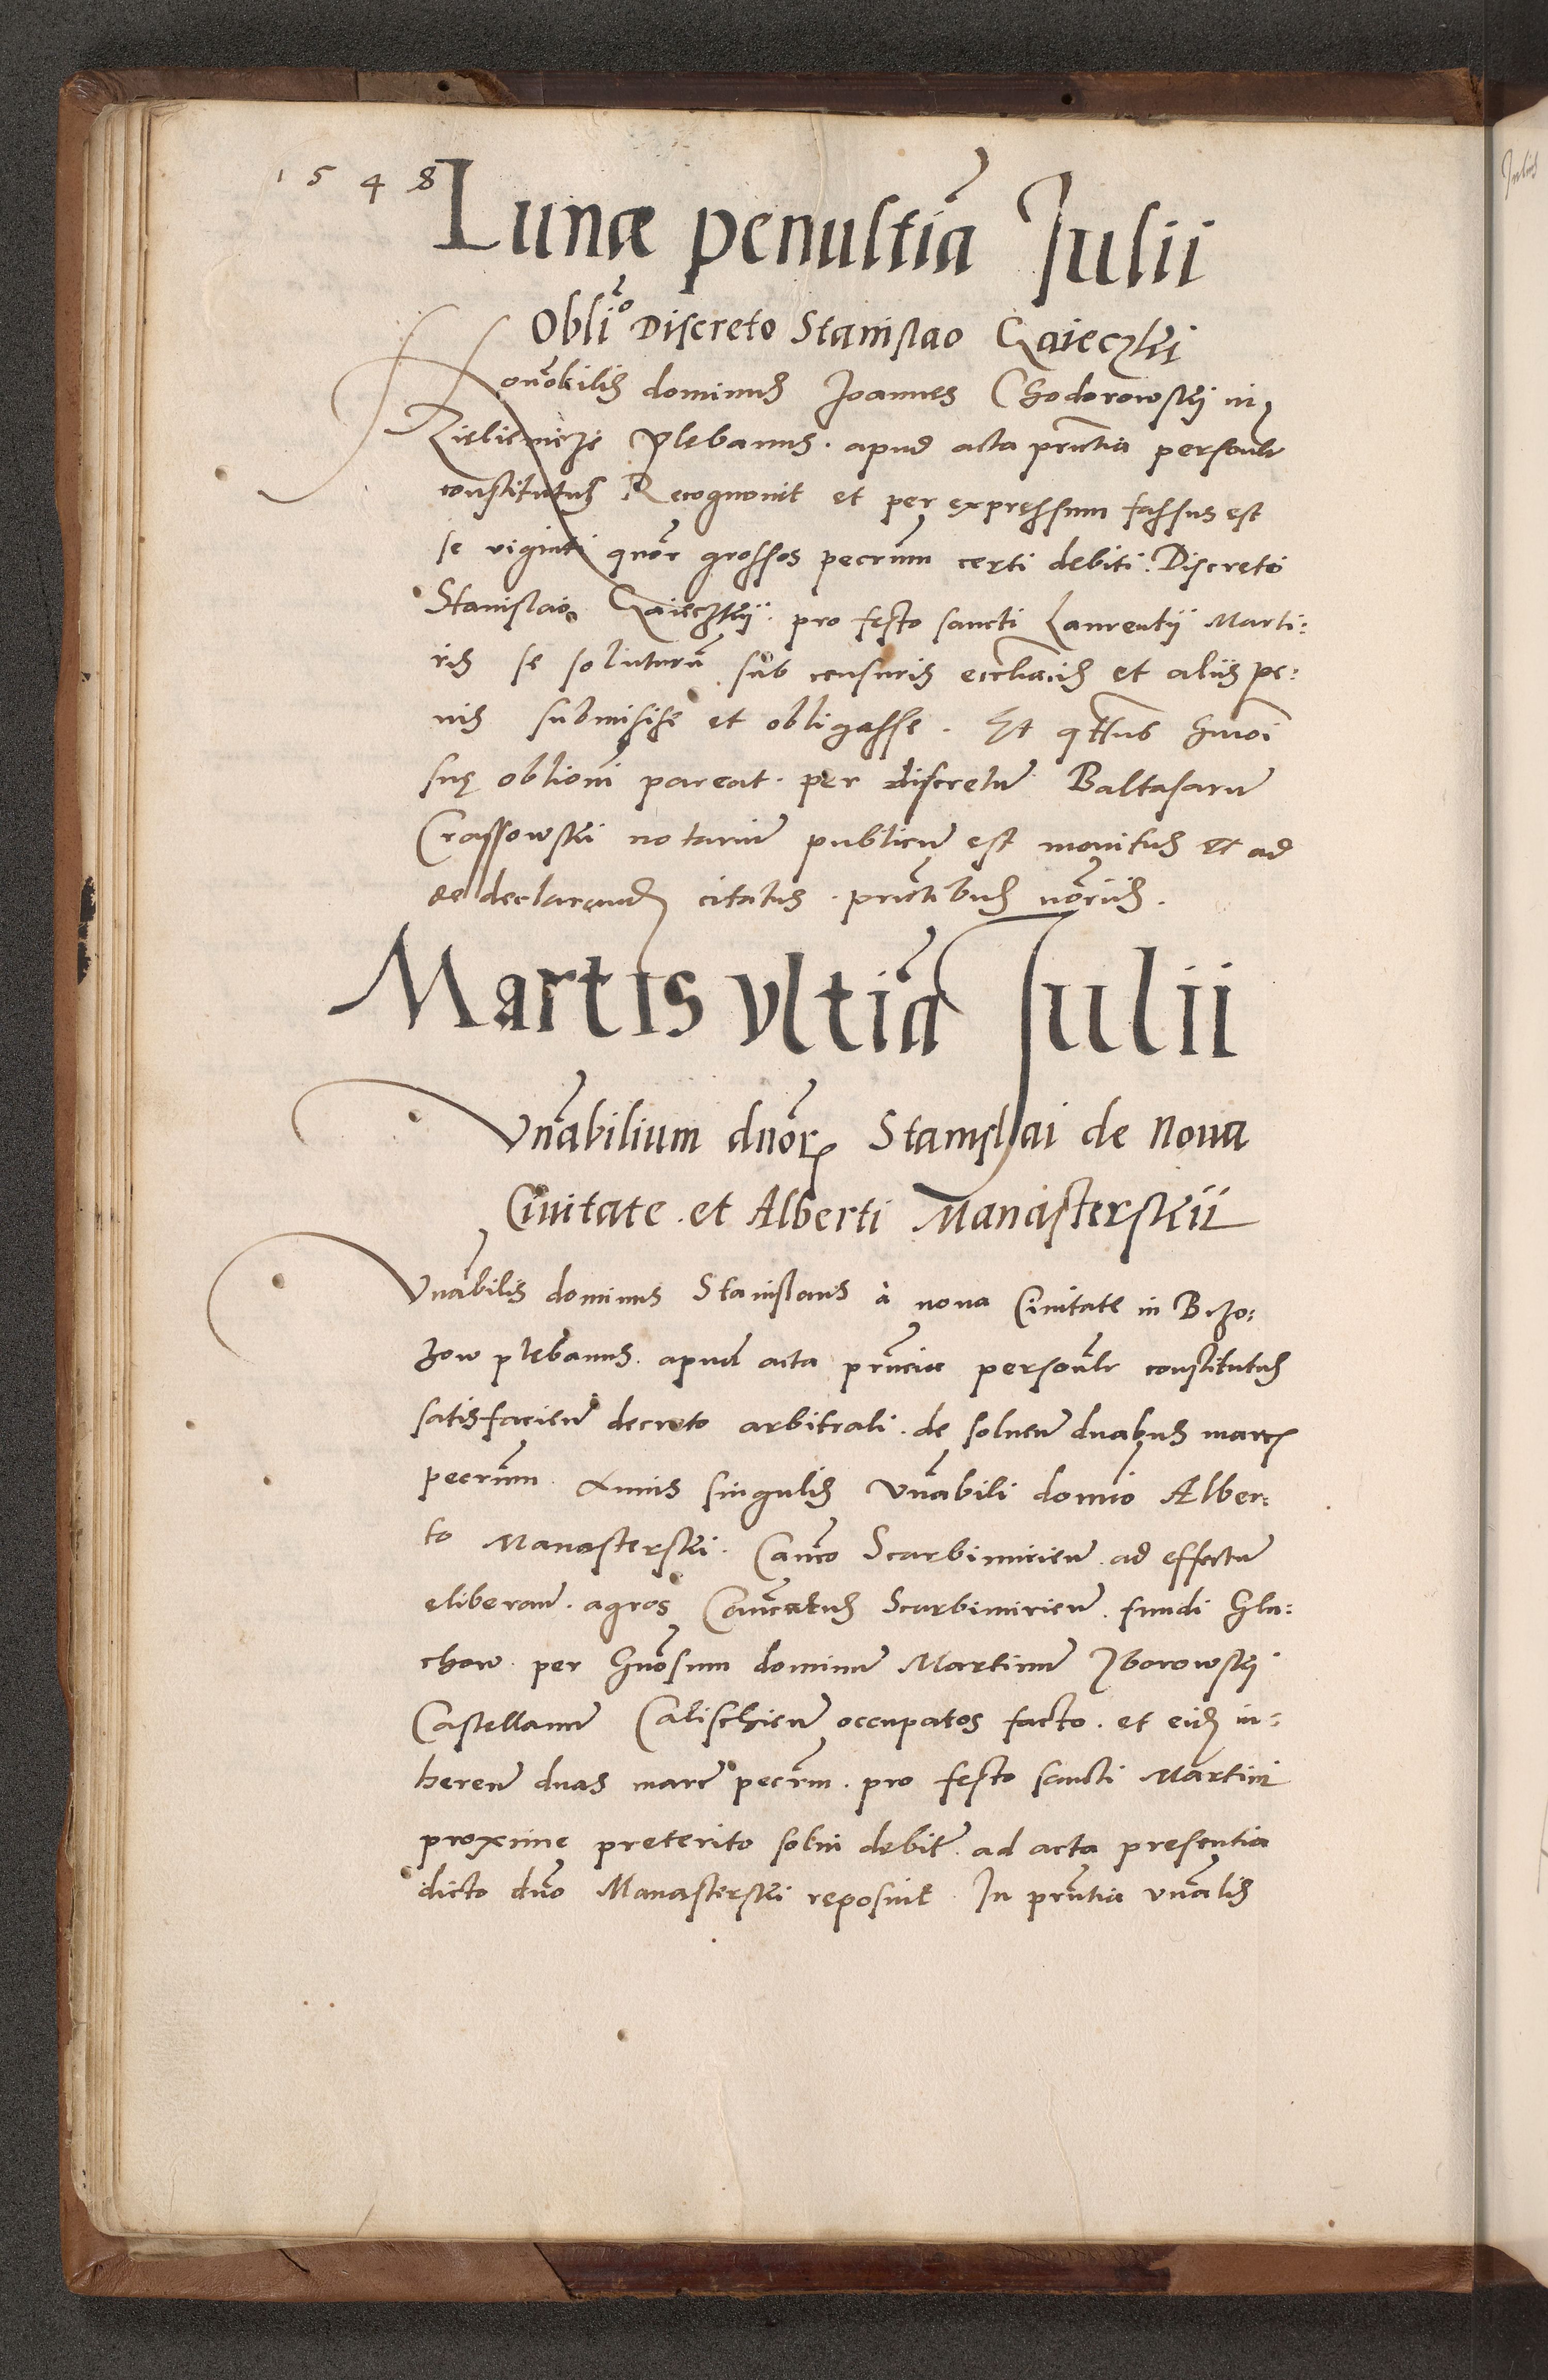 1548
Lunæ penultĩa Julii
Obliõ Discreto Stanislao Gaieczki
Honõbilis dominus Joannes Chodorowskj in
Zieliemicze plebanus. apud acta prñtia personalr̃
constitutus Recognouit et per expressum fassus est
se viginti quõr grossos pecr̃um certi debiti. Discreto
Stanislao Gaieczkij. pro festo sancti Laurentij Marti:
ris se soluturũ sub censuris eccl̃iacis et aliis pe:
nis submisisse et obligasse. Et qttus hmõi
suę obliõni pareat. per discretũ Baltasarũ
Crassowski notariũ publicũ est monitus et ad
se declarandũ citatus. prñtibus nõriis.
Martis vltĩa Julii
Vñabilium dnõrꝝ Stanislai de Noua
Ciuitate. et Alberti Manasterskii
Vñabilis dominus Stanislaus à noua Ciuitate in Bzo:
zow plebanus. apud acta prñcia personalr̃ constitutus
satisfacieñ decreto arbitrali. de solueñ duabus marcꝭ
pecr̃um. Annis singulis Vñabili domino Alber:
to Manasterski. Cañco Scarbimirieñ. ad effectũ
eliberañ. agros Cañcatus Scarbimirieñ. fundi Glu:
chow. per Gñosum dominũ Martinũ Zborowskj
Castellanũ Calischieñ occupatos facto. et eidẽ in:
hereñ duas marc̃ pecr̃m. pro festo sancti Martini
proxime preterito solui debit̃. ad acta presentia
dicto dño Manasterski reposuit. In prñtia vñalis
Julius